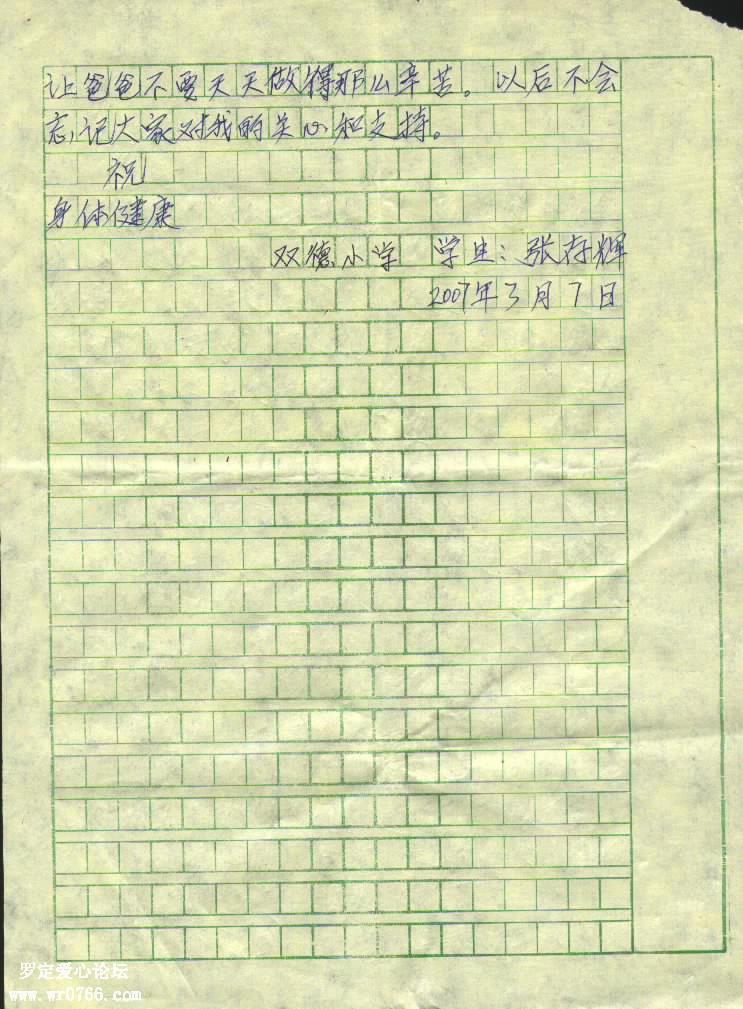 让爸爸不要天天做得那么辛苦。以后不会
忘记大家对我的关心和支持。
祝
身体健康
双德小学 学生：张存辉
2007年3月7日
罗定爱心论坛
www.wr0766.com